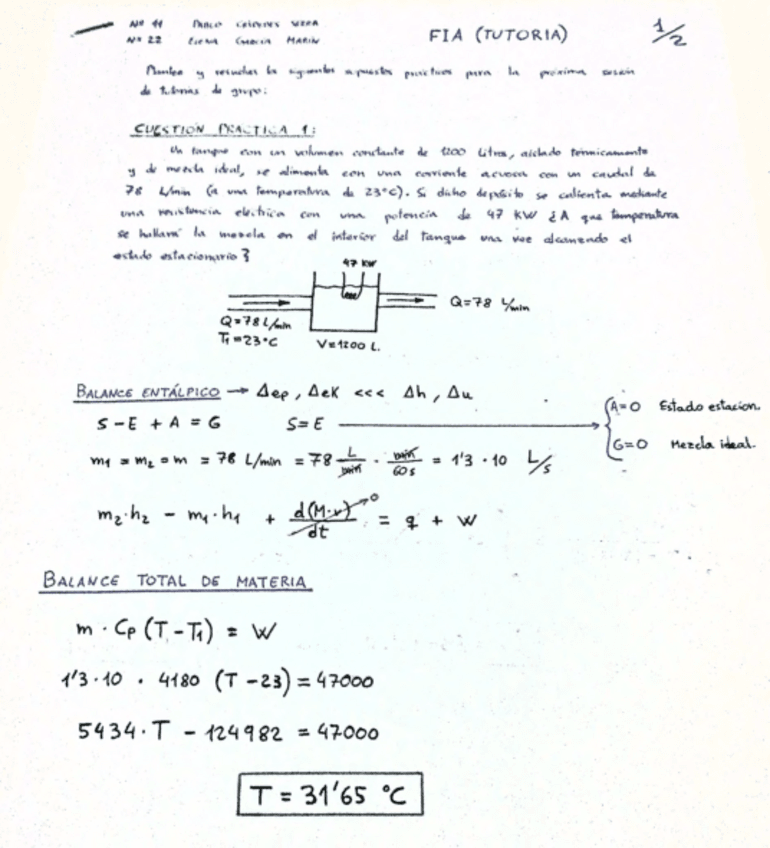 Nº 11 PABLO CÉSPEDES VERA FIA (TUTORIA) 1/2
Nº 22 ELENA GARCÍA MARÍN
Plantea y resuelve los siguientes supuestos prácticos para la próxima sesión
de tutorías de grupo:
CUESTIÓN PRÁCTICA 1:
Un tanque con un volumen constante de 1200 litros, aislado térmicamente
y de mezcla ideal, se alimenta con una corriente acuosa con un caudal de
78 L/min (a una temperatura de 23°C). Si dicho depósito se calienta mediante
una resistencia eléctrica con una potencia de 47 KW ¿A que temperatura
se hallará la mezcla en el interior del tanque una vez alcanzado el
estado estacionario?
47 KW
Q=78 L/min
T₁=23°C
V=1200 L.
Q=78 L/min
BALANCE ENTÁLPICO → Δep, Δek <<< Δh, Δu
S-E + A = G S=E
A=0 Estado estacion.
G=0 Mezcla ideal.
m₁ = m₂ = m = 78 L/min = 78 L/min · min/60s = 1'3 · 10 L/s
m₂·h₂ - m₁·h₁ + d(M·v)/dt →0 = q + W
BALANCE TOTAL DE MATERIA
m · Cp (T - T₁) = W
1'3·10 · 4180 (T - 23) = 47000
5434·T - 124982 = 47000
T = 31'65 °C